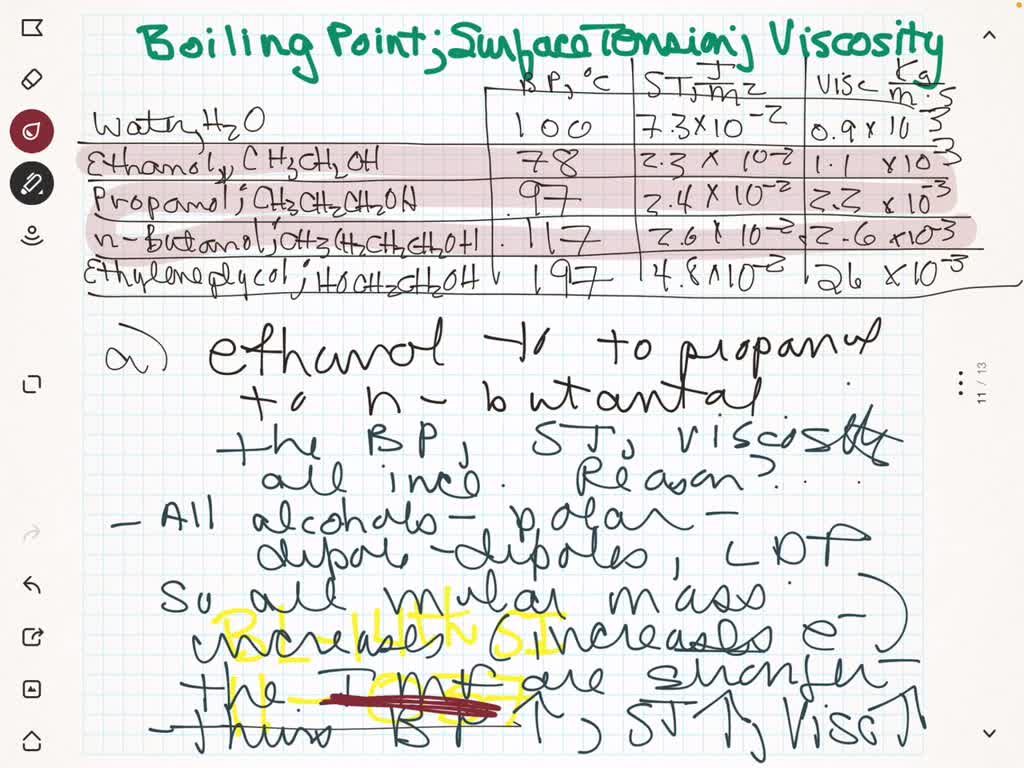 Boiling Point; Surface Tension; Viscosity
BP, °C ST, J/m² Visc Kg/m·s
Water, H₂O 100 7.3 × 10⁻² 0.9 × 10⁻³
Ethanol, CH₃CH₂OH 78 2.3 × 10⁻² 1.1 × 10⁻³
Propanol; CH₃CH₂CH₂OH 97 2.4 × 10⁻² 2.2 × 10⁻³
n-butanol; CH₃CH₂CH₂CH₂OH 117 2.6 × 10⁻² 2.6 × 10⁻³
Ethylene glycol; HOCH₂CH₂OH 197 4.8 × 10⁻² 26 × 10⁻³
a) ethanol to to propanol
to n-butantal
the BP, ST, viscosity
all inc. Reason?
- All alcohols - polar -
dipole-dipoles, LDF
So all molar mass
increases (increases e⁻)
the Imf are stronger
thus BP ↑, ST ↑, Visc ↑
11 / 13